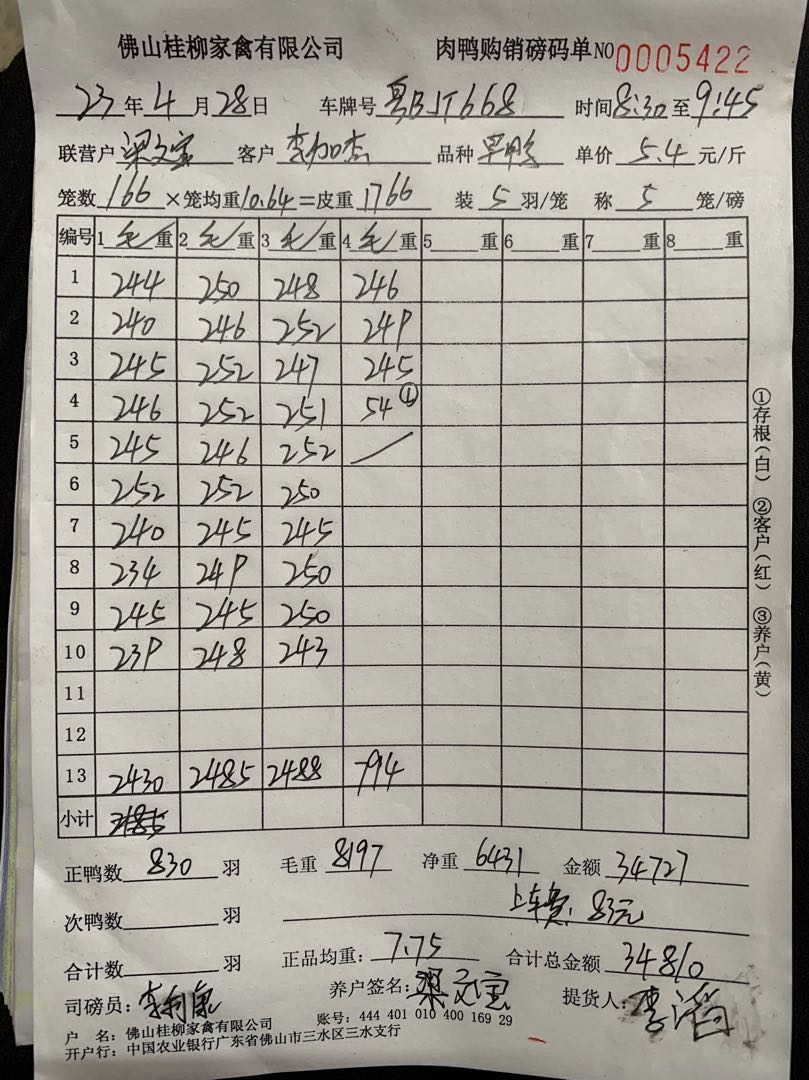 佛山桂柳家禽有限公司 肉鸭购销磅码单 NO 0005422
23年4月28日 车牌号 粤BJT668 时间8:30至9:45
联营户 梁文宝 客户 李加杰 品种 旱鸭 单价 5.4 元/斤
笼数 166 ×笼均重10.64=皮重 1766 装 5 羽/笼 称 5 笼/磅
编号 1 毛/重 2 毛/重 3 毛/重 4 毛/重 5 重 6 重 7 重 8 重
1 244 250 248 246
2 240 246 252 249
3 245 252 247 245
4 246 252 251 54①
5 245 246 252 /
6 252 252 250
7 240 245 245
8 234 249 250
9 245 245 250
10 239 248 243
11
12
13 2430 2485 2488 794
小计
正鸭数 830 羽 毛重 8197 净重 6431 金额 34727
次鸭数 羽 上车费:83元
合计数 羽 正品均重:7.75 合计总金额 34810
司磅员:李利康 养户签名:梁文宝 提货人:李滔
户 名:佛山桂柳家禽有限公司 账号:444 401 010 400 169 29
开户行:中国农业银行广东省佛山市三水区三水支行
①存根(白) ②客户(红) ③养户(黄)